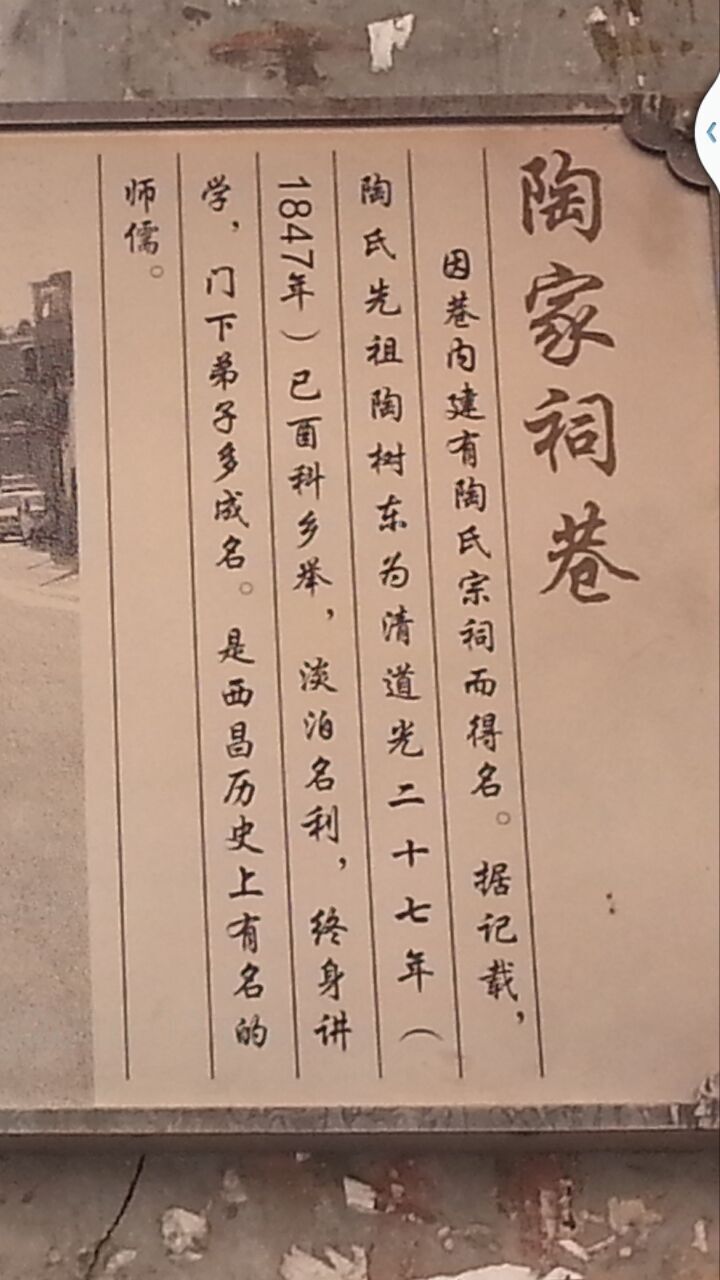 陶家祠巷
因巷内建有陶氏宗祠而得名。据记载，
陶氏先祖陶树东为清道光二十七年（
1847年）已酉科乡举，淡泊名利，终身讲
学，门下弟子多成名。是西昌历史上有名的
师儒。